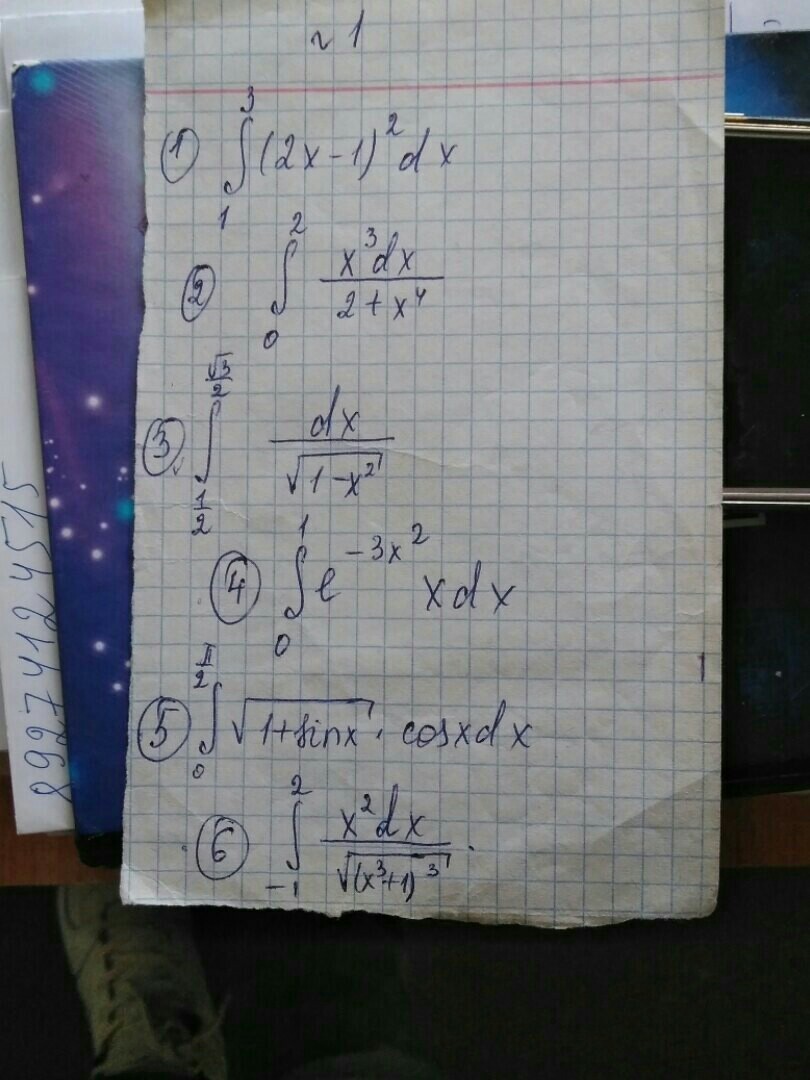 №1
① ∫₁³ (2x-1)² dx
② ∫₀² x³dx / (2+x⁴)
③ ∫_{1/2}^{√3/2} dx / √(1-x²)
④ ∫₀¹ e^{-3x²} xdx
⑤ ∫₀^{π/2} √(1+sinx) · cosxdx
⑥ ∫₋₁² x²dx / √((x³+1)³).
89274124515